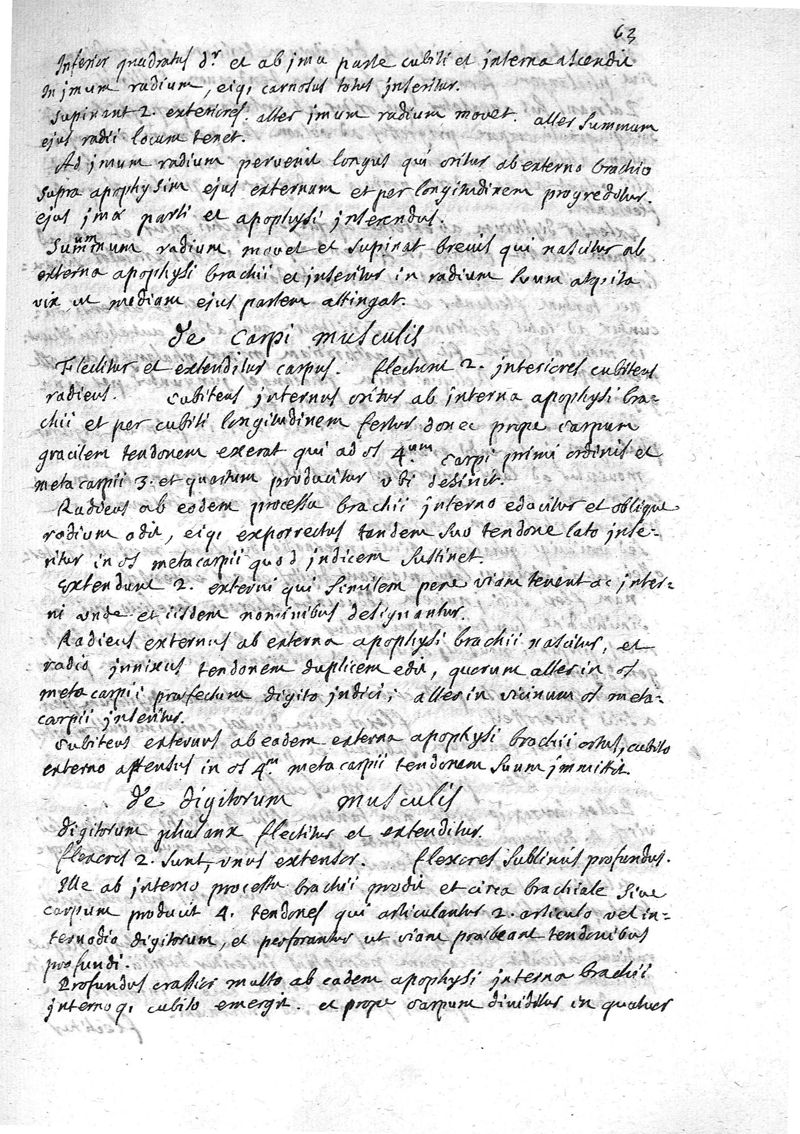 63
Inferior quadratus dr et ab jma parte cubiti et interna ascendit
in jmum radium, eiq; carnosus totus inseritur.
Supinant 2. exteriores. alter jmum radium movet. alter summum
ejus radii locum tenet.
Ad jmum radium pervenit longus qui oritur ab externo brachio
supra apophysim ejus externam et per longitudinem progreditur.
ejus jmæ parti et apophysi inserendus.
Summum radium movet et supinat brevis qui nascitur ab
externa apophysi brachii et inseritur in radium suum atq; ita
vix ut mediam ejus partem attingat.
de carpi musculis
Flectitur et extenditur carpus. flectunt 2. interiores cubiteus
radieus. Cubiteus internus oritur ab interna apophysi bra-
chii et per cubiti longitudinem fertur donec prope carpum
gracilem tendonem exerat qui ad os 4.um carpi primi ordinis et
metacarpii 3. et quartum producitur ubi desinit.
Radieus ab eodem processu brachii interno educitur et oblique
radium adit, eiq; exporrectus tandem suo tendone lato inse=
ritur in os metacarpii quod indicem sustinet.
Extendunt 2. externi qui similem pene viam tenent ac inter=
ni unde et iisdem nominibus designantur.
Radieus externus ab externa apophysi brachii nascitur, et
radio innixus tendonem duplicem edit, quorum alter in os
metacarpii præfectum digito indici; alter in vicinum os meta-
carpii inseritur.
Cubiteus externus ab eadem externa apophysi brachii ortus, cubito
externo affensus in os 4.m metacarpii tendonem suum immittit.
de digitorum musculis
digitorum phalanx flectitur et extenditur.
flexores 2. sunt, unus extensor. flexores sublimis profundus.
Ille ab interno processu brachii prodit et circa brachiale sive
carpum producit 4. tendones qui articulantur 2. articulo vel in=
ternodio digitorum, et perforantur ut viam præbeant tendonibus
profundi.
Profundus crassior multo ab eadem apophysi interna brachii
internoq; cubito emergit. et prope carpum dividitur in quatuor